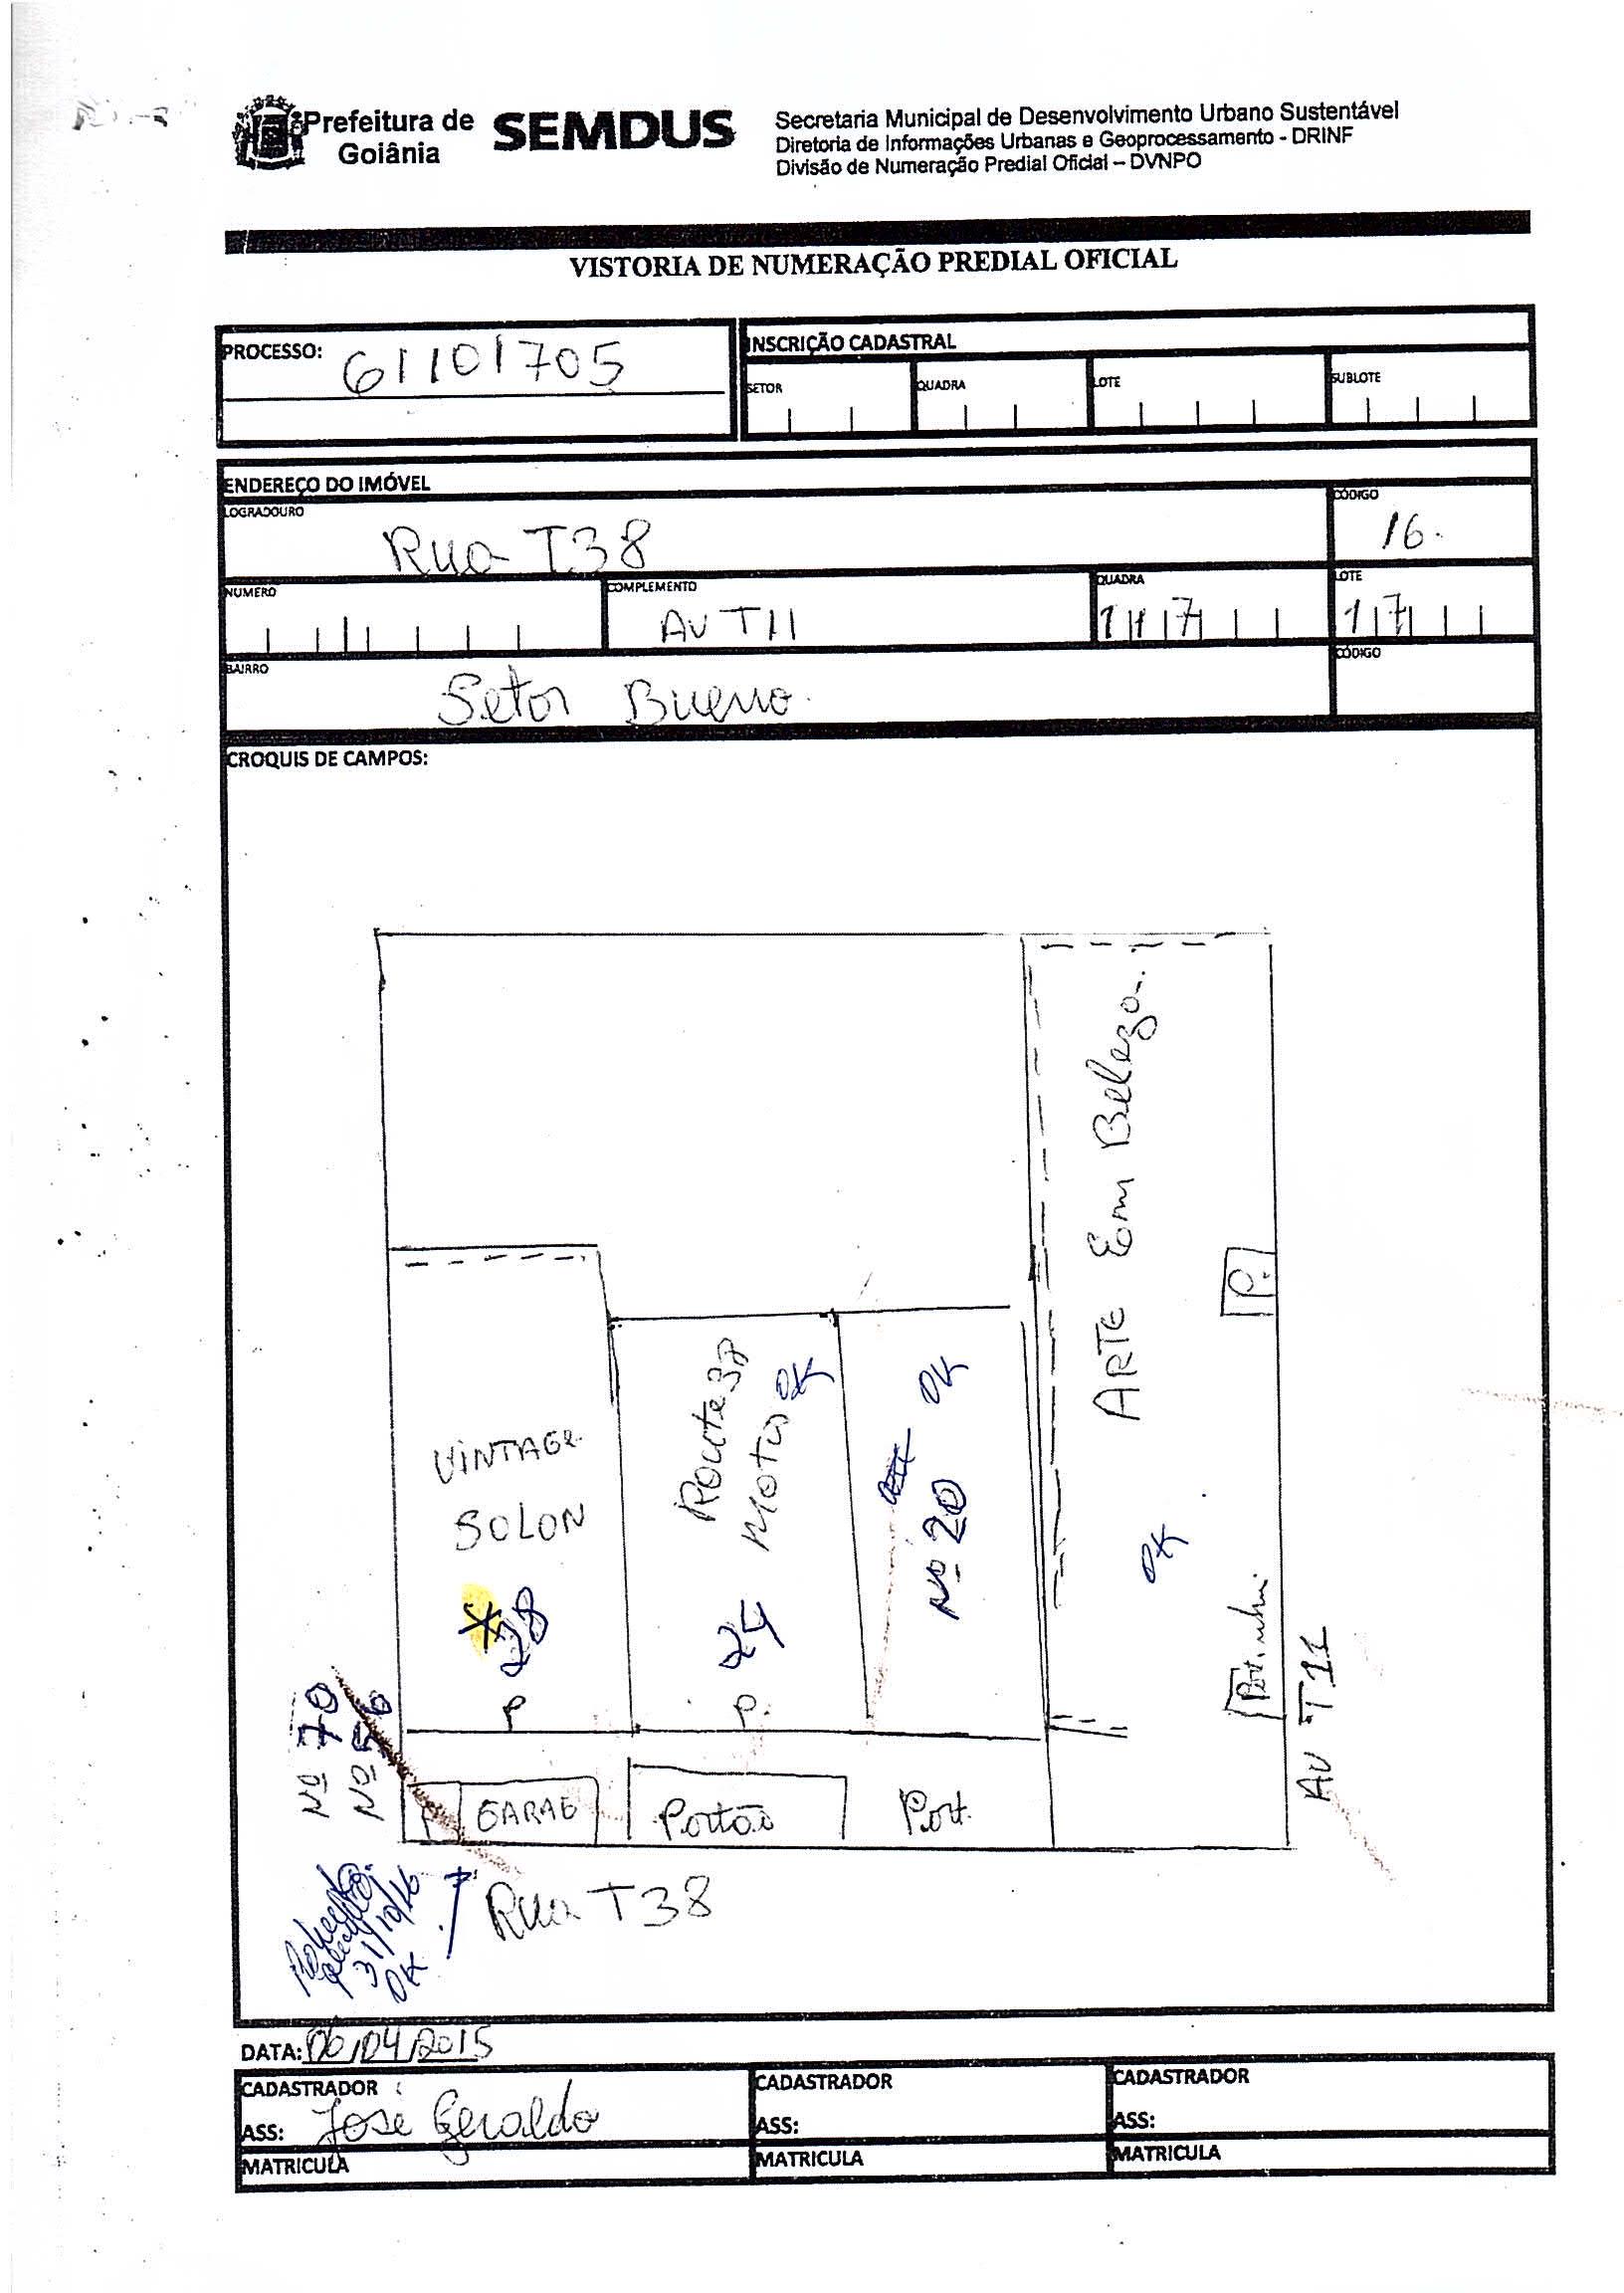 Prefeitura de
Goiânia
SEMDUS
Secretaria Municipal de Desenvolvimento Urbano Sustentável
Diretoria de Informações Urbanas e Geoprocessamento - DRINF
Divisão de Numeração Predial Oficial – DVNPO
VISTORIA DE NUMERAÇÃO PREDIAL OFICIAL
PROCESSO: 61101705
INSCRIÇÃO CADASTRAL
SETOR QUADRA LOTE SUBLOTE
ENDEREÇO DO IMÓVEL
LOGRADOURO CÓDIGO
Rua T38 16.
NUMERO COMPLEMENTO QUADRA LOTE
AV T11 117 17
BAIRRO CÓDIGO
Setor Bueno.
CROQUIS DE CAMPOS:
ARTE Em Beleza.
P.
VINTAGE
SOLON
28
P
Route 37
Motus OK
24
P.
OK
Nº 20
OK
Nº 70
Nº 56
P GARAG
Portão
Port.
AV T11
Rua T38
31/10/16
OK
DATA: 06/04/2015
CADASTRADOR :
ASS: José Geraldo
MATRICULA
CADASTRADOR
ASS:
MATRICULA
CADASTRADOR
ASS:
MATRICULA